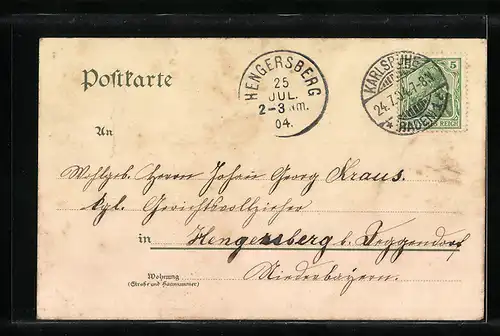 Postkarte
HENGERSBERG
25
JUL.
2-3 Nm.
04.
KARLSRUHE
24.7.04.7-8N
BADEN
5
REICH
An
Wohlgeb. Herrn Johann Georg Kraus.
kgl. Gerichtsvollzieher
in Hengersberg b. Deggendorf
Niederbayern.
Wohnung
(Straße und Hausnummer)